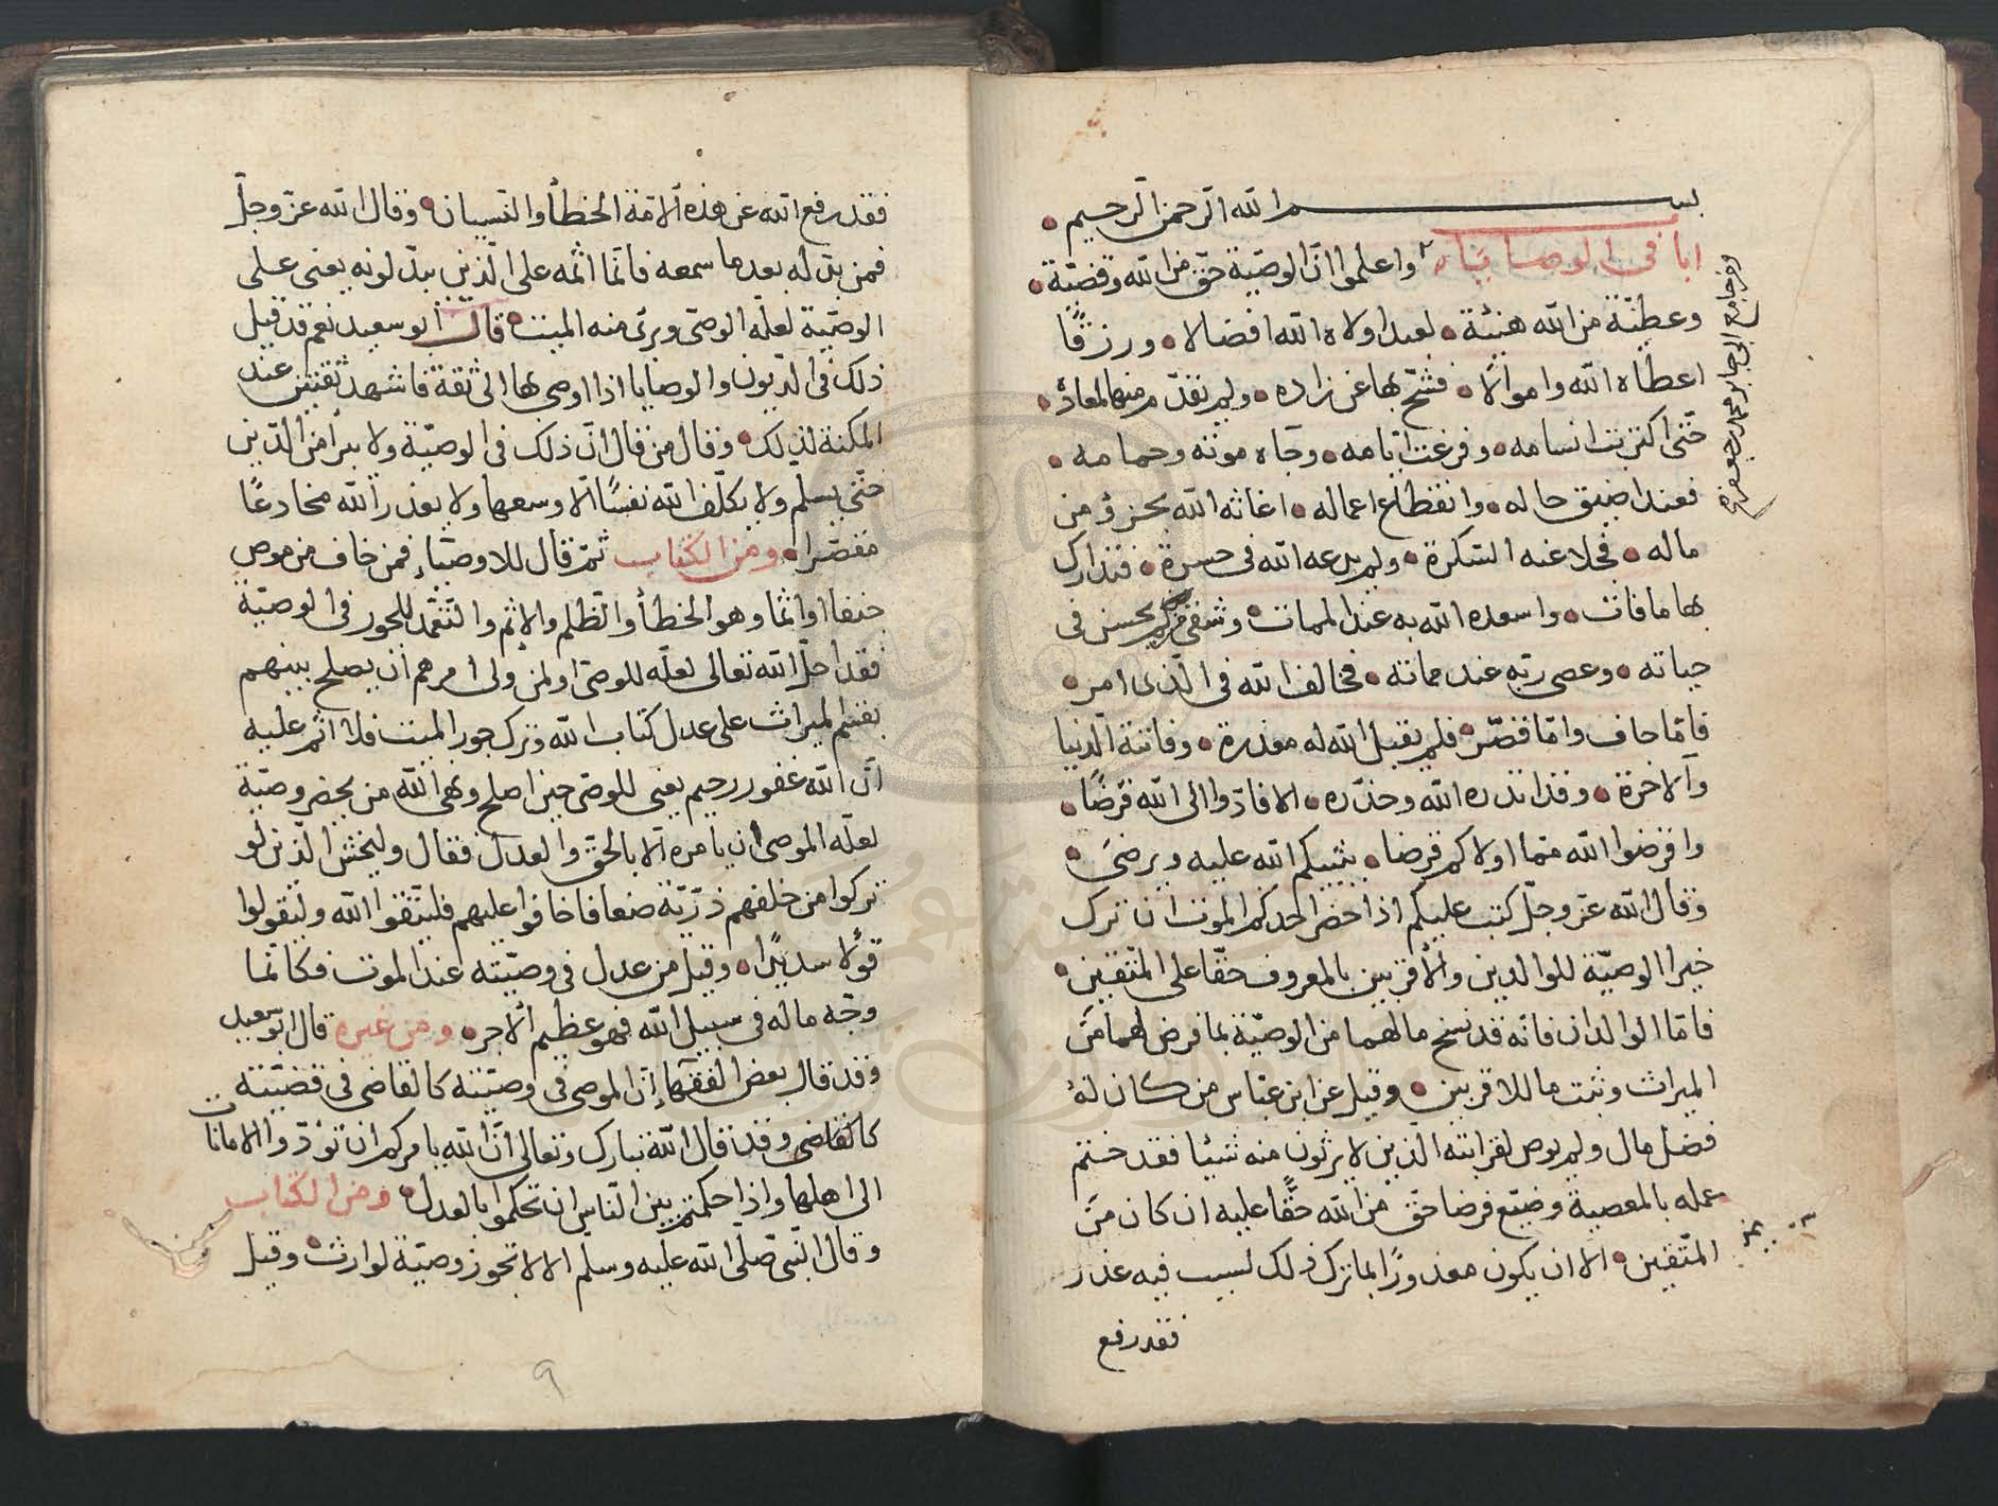 بسم الله الرحمن الرحيم
باب في الوصايا واعلموا ان الوصيّة حقّ من الله وقضيّة
وعطيّة من الله هنيئة لعبد اولاه الله افضالا ورزقًا
اعطاه الله واموالًا فشحّ بها عن زاده ولم يقدّم منها لمعادٔه
حتّى اكتربت انسامه وفرغت ايّامه وجاه موته وحمامه
فعند اضيق حاله وانقطاع اعماله اغاثه الله بجزؤ من
ماله فجلا عنه السّكرة ولم يدعه الله في حسرة فتدارك
بها مافات واسعده الله به عند الممات وشقي من لم يحسن في
حياته وعصى ربّه عند مماته فخالف الله في الّذي امر
فامّا حاف وامّا قصّر فلم يقبل الله له معذرة وفاتته الدّنيا
والاخرة وقد انذره الله وحذّره الا فادّوا الى الله قرضًا
واقرضوا الله ممّا اولاكم قرضا يثيبكم الله عليه ويرضى
وقال الله عزّ وجلّ كتب عليكم اذا حضر احدكم الموت ان ترك
خيرا الوصيّة للوالدين والأقربين بالمعروف حقّا على المتّقين
فامّا الوالدان فانّه قد نسخ مالهما من الوصيّة بما فرض لهما من
الميراث وثبت ما للاقربين وقيل عن ابن عبّاس من كان له
فضل مال ولم يوص لقرابته الّذين لا يرثون منه شيئا فقد ختم
عمله بالمعصية وضيّع فرضا حقّ من الله حقًّا عليه ان كان من
المتّقين الا ان يكون معذورًا بما ترك ذلك لسبب فيه عذر
فقد رفع
ومن جامع ابي جابر محمد بن جعفر
فقد رفع الله عن هذه الامّة الخطأ والنّسيان وقال الله عزّ وجلّ
فمن بدّله بعد ما سمعه فانّما اثمه على الّذين يبدّلونه يعني على
الوصيّة لعلّه الوصى وبرئ منه الميت قال ابو سعيد نعم قد قيل
ذلك في الدّيون والوصايا اذا اوصى بها الى ثقة فاشهد ثقتين عند
المكنة لذلك وقال من قال انّ ذلك في الوصيّة ولا يبرأ من الدّين
حتّى يسلم ولا يكلّف الله نفسًا الّا وسعها ولا يعذر الله مخادعًا
مقصّرا ومن الكتاب ثمّ قال للاوصيّاء فمن خاف من موص
جنفا او اثما وهو الخطأ والظّلم والاثم والتّعمّد للجور في الوصيّة
فقد احلّ الله تعالى لعلّه للوصيّ او لمن ولى امرهم ان يصلح بينهم
بقسم الميراث على عدل كتاب الله وترك جور الميت فلا اثم عليه
انّ الله غفور رحيم يعني للوصى حين اصلح ونهى الله من يحضر وصيّة
لعلّه الموصي ان يامره الّا بالحقّ والعدل فقال وليخش الّذين لو
تركوا من خلفهم ذرّيّة ضعافا خافوا عليهم فليتّقوا الله وليقولوا
قولا سديدًا وقيل من عدل في وصيّته عند الموت فكانّما
وجّه ماله في سبيل الله فهو عظيم الاجر ومن غيره قال ابو سعيد
وقد قال بعض الفقهآء انّ الموصي في وصيّته كالقاضي في قضيّته
كالقاضي وقد قال الله تبارك وتعالى انّ الله يامركم ان تؤدّوا الامانات
الى اهلها واذا حكمتم بين النّاس ان تحكموا بالعدل ومن الكتاب
وقال النّبيّ صلّى الله عليه وسلم الا لا تجوز وصيّة لوارث وقيل
٩